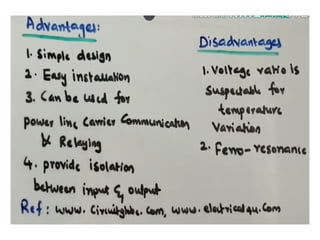 Advantages:
1. Simple design
2. Easy installation
3. Can be used for
power line carrier communication
& Relaying
4. provide isolation
between input & output
Disadvantages
1. Voltage ratio is
suspectable for
temperature
variation
2. Ferro-resonance
Ref: www.circuitglobe.com, www.electrical4u.com